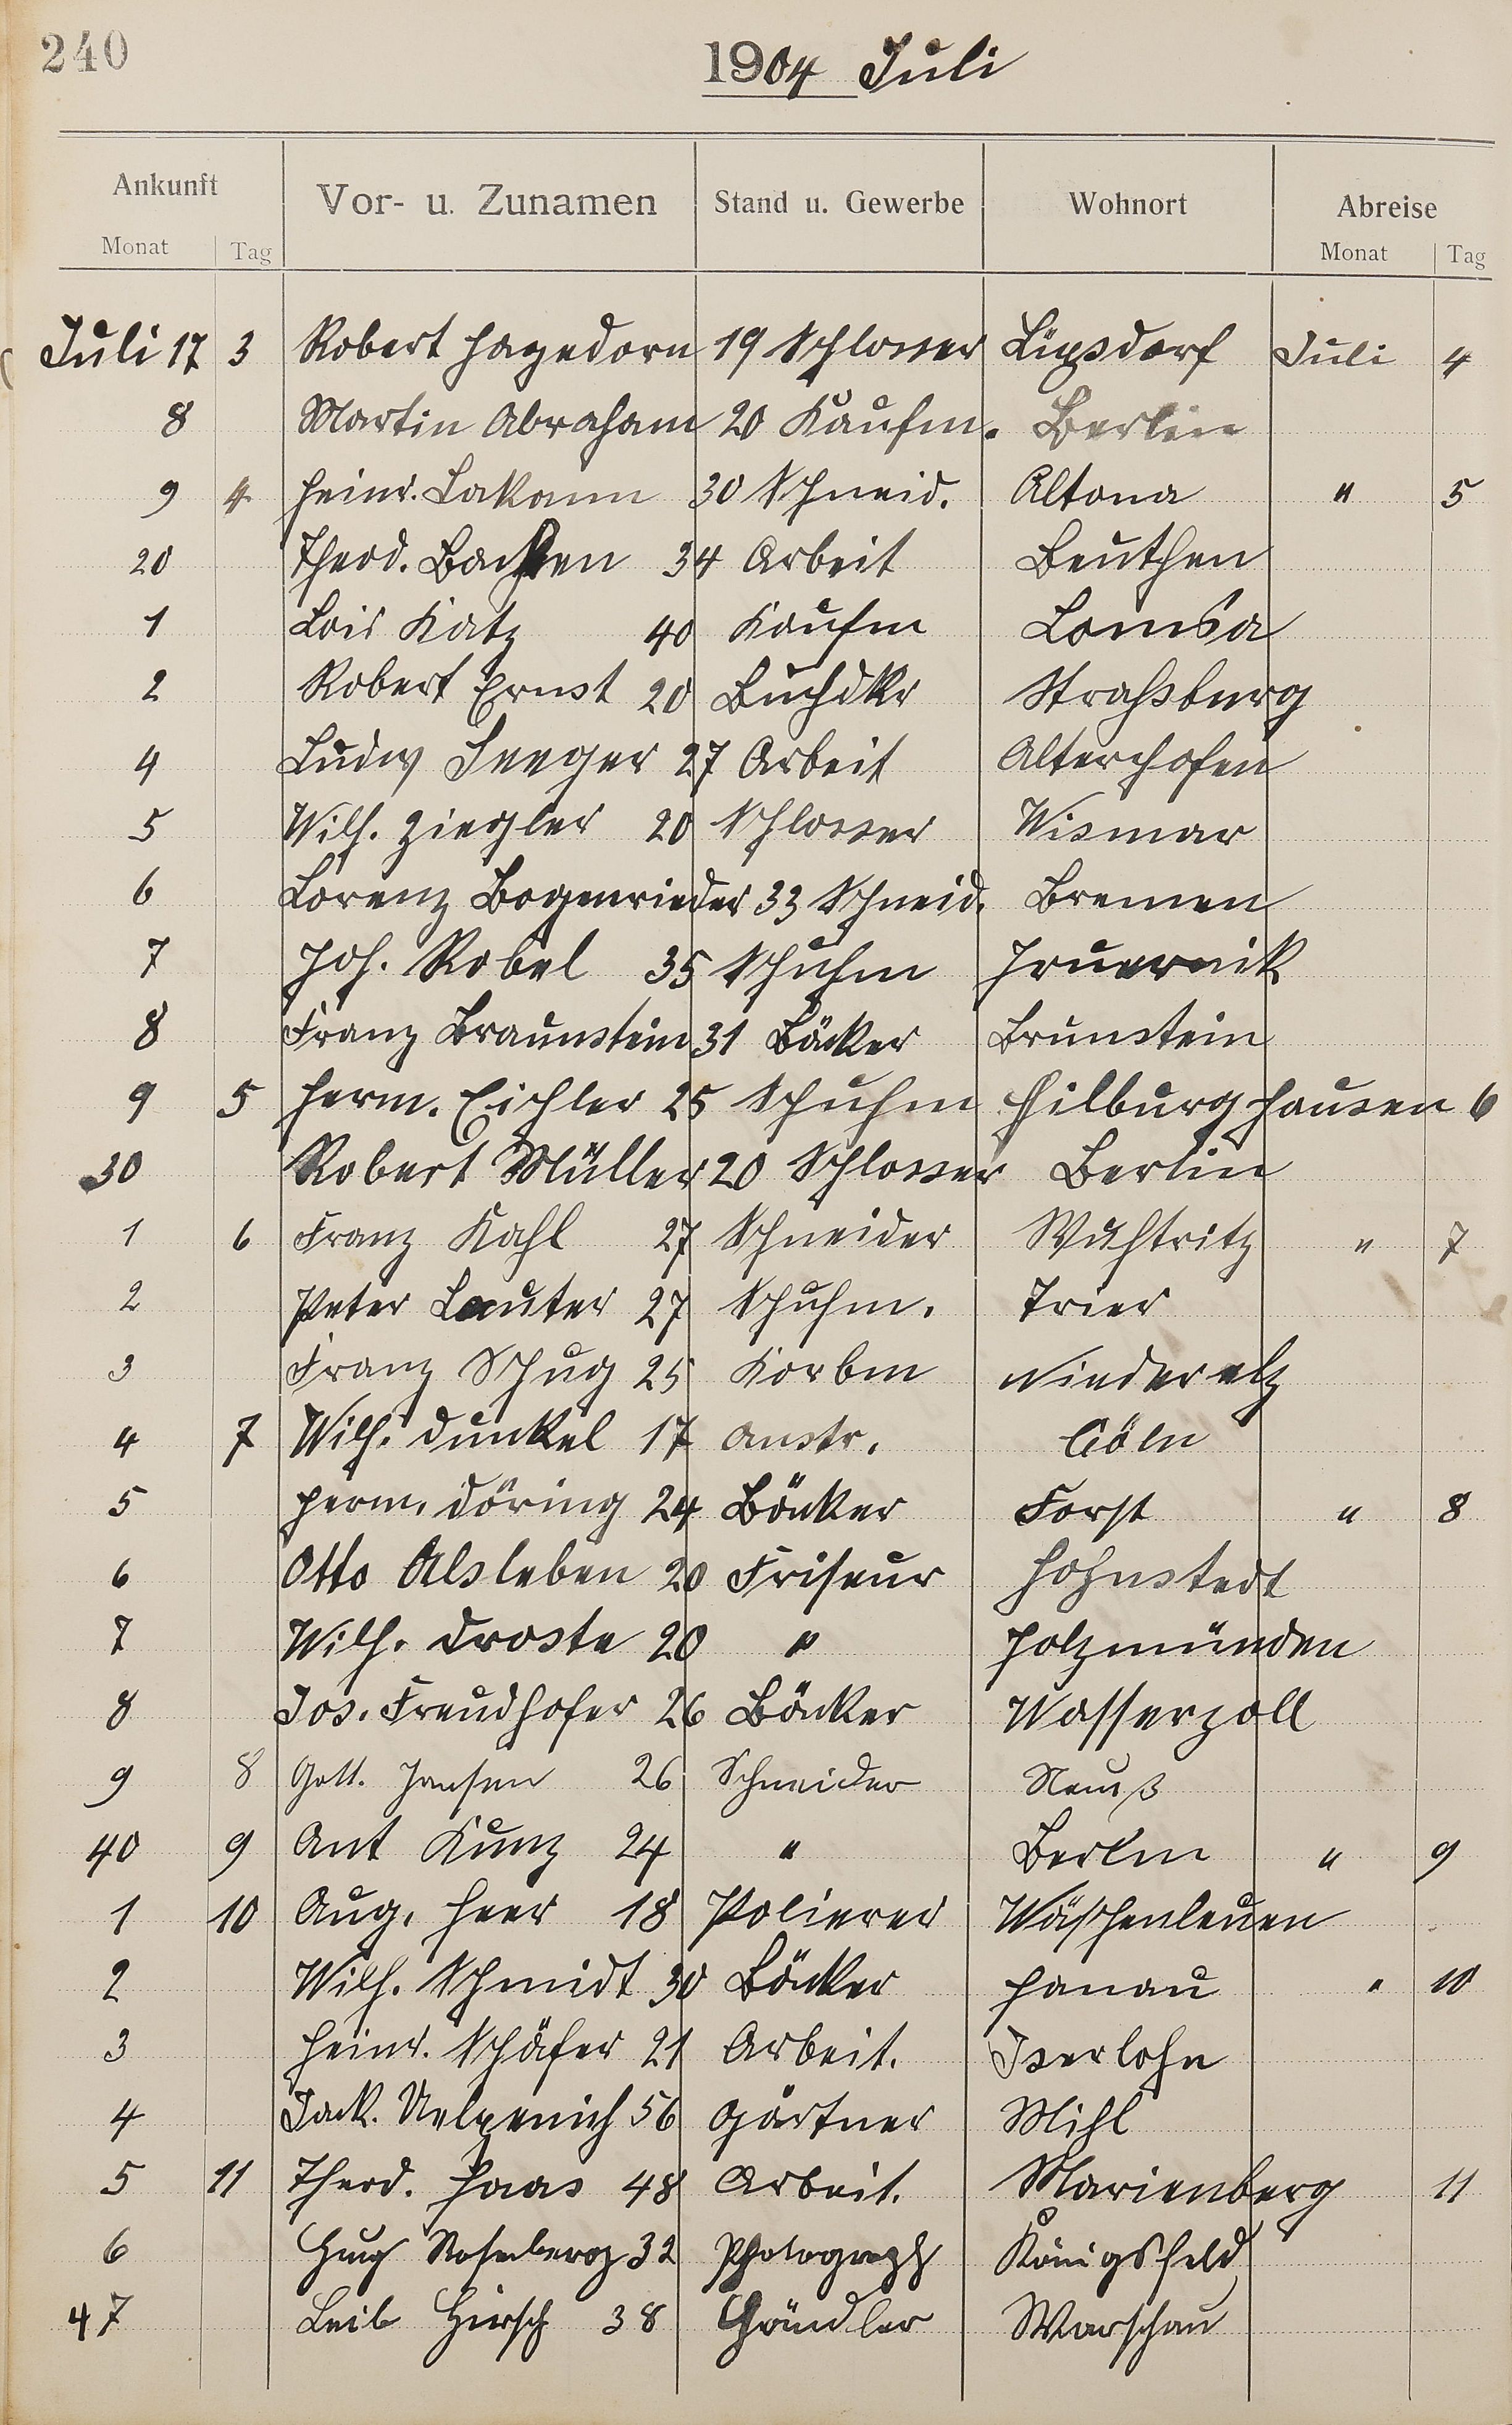 240
1904 Juli
Ankunft Vor- u. Zunamen Stand u. Gewerbe Wohnort Abreise
Monat Tag Monat Tag
Juli 17 3 Robert Hagedorn 19 Schlosser Juli 4
8 Martin Abraham 20 Kaufm. Berlin
9 4 Heinr. Lakann 30 Schneid. Altona " 5
20 Theod. 34 Arbeit Beuthen
1 Lois Katz 40 Kaufm Lomsa
2 Robert Ernst 20 Buchdkr Strassburg
4 Ludw Seeger 27 Arbeit Alterhofen
5 Wilh. Ziegler 20 Schlosser Wismar
6 Lorenz Bogenrieder 33 Schneid. Bremen
7 Joh. Robel 35 Schuhm
8 Franz Braunstein 31 Bäcker Brunstein
9 5 Herm. Eichler 25 Schuhm Hilburghausen 6
30 Robert Müller 20 Schlosser Berlin
1 6 Franz Kahl 27 Schneider " 7
2 Peter Lauter 27 Schuhm. Trier
3 Franz Schug 25 Korbm Niederelz
4 7 Wilh. Dunkel 17 Anstr. Cöln
5 Herm. Döring 24 Bäcker Forst " 8
6 Otto Alsleben 20 Friseur Hohnstedt
7 Wilh. Droste 20 " Holzmünden
8 Jos. Freudhofer 26 Bäcker Wasserzoll
9 8 Gott. Jansen 26 Schneider Neuß
40 9 Ant Kunz 24 " Berlin " 9
1 10 Aug. Heer 18 Polierer Wäschenleuen
2 Wilh. Schmidt 30 Bäcker Hanau " 10
3 Heinr. Schäfer 21 Arbeit. Iserlohn
4 Jack. Uelpenich 56 Gärtner Mihl
5 11 Theod. Haas 48 Arbeit. Marienberg 11
6 Hug Rosenberg 32 Photograph Königsfeld
47 Leib Hirsch 38 Händler Warschau